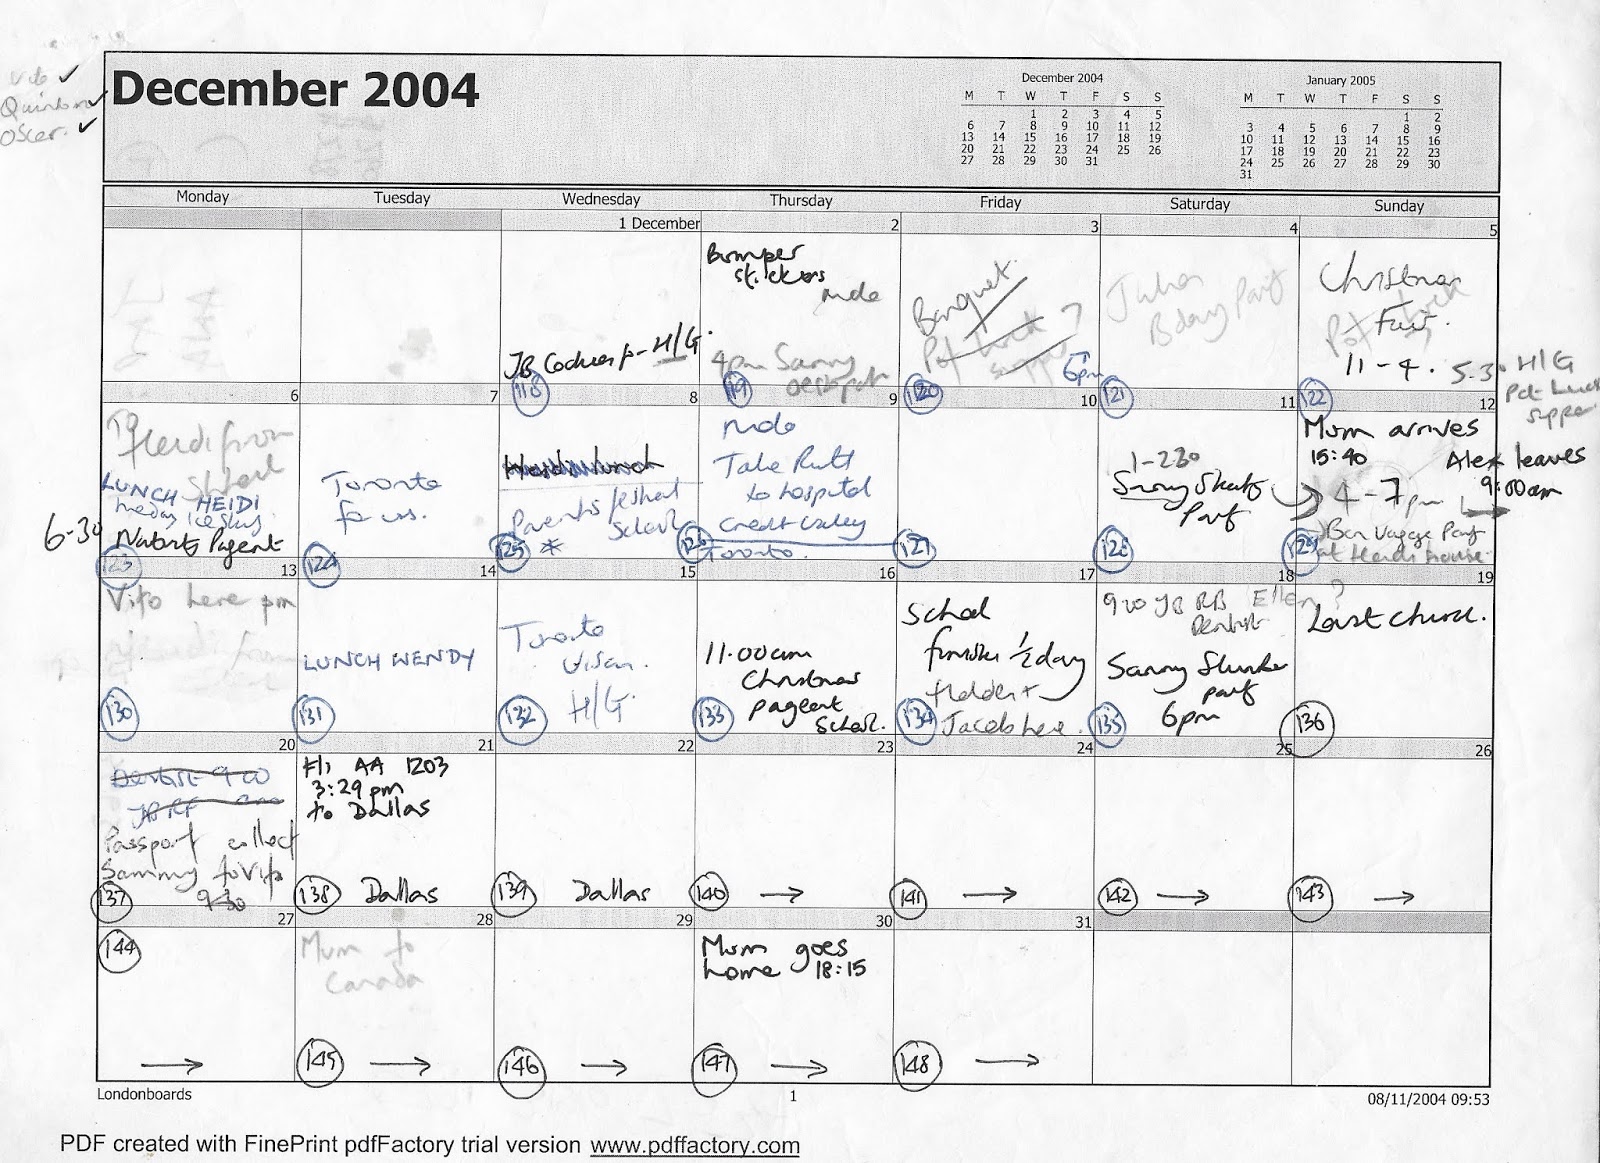 Vito ✓
✓
Oscar. ✓
December 2004
December 2004
M T W T F S S
1 2 3 4 5
6 7 8 9 10 11 12
13 14 15 16 17 18 19
20 21 22 23 24 25 26
27 28 29 30 31
January 2005
M T W T F S S
1 2
3 4 5 6 7 8 9
10 11 12 13 14 15 16
17 18 19 20 21 22 23
24 25 26 27 28 29 30
31
Monday Tuesday Wednesday Thursday Friday Saturday Sunday
1 December 2 3 4 5
JB H/G.
118
Bumper
stickers
4pm Sammy
119
Banquet
Pot luck
supper
6pm
120
Bday Party
121
Christmas
Fair.
Pot luck
11-4.
122
5.30 H/G
Pot Luck
supper
6 7 8 9 10 11 12
To
Heidi from
School
LUNCH HEIDI
6-30
Pagent
123
Toronto
for us.
124
Heidi Lunch
Parents
School
*
125
Take Ruth
to hospital
Credit Valley
Toronto.
126
127
1-230
Sammy Skate
Party
128
Mum arrives
15:40
4-7pm
Bon Voyage Party
at Heidi's house
129
Alex leaves
9:00am
13 14 15 16 17 18 19
Vito here pm
130
LUNCH WENDY
131
Toronto
H/G.
132
11.00am
Christmas
pageant
School.
133
School
finishes 1/2 day
Jacob here.
134
900 JB RB Ellen?
Dentist
Sammy
party
6pm
135
Last church.
136
20 21 22 23 24 25 26
900
Passport collect
Sammy to Vito
930
137
Fli AA 1203
3:29pm
to Dallas
138 Dallas
139 Dallas
140 →
141 →
142 →
143 →
27 28 29 30 31
144
→
Mum to
Canada
145 →
146 →
Mum goes
home 18:15
147 →
148 →
Londonboards
1
08/11/2004 09:53
PDF created with FinePrint pdfFactory trial version www.pdffactory.com